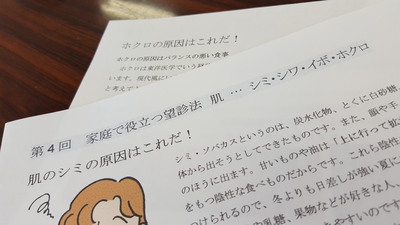 ホクロの原因はこれだ！
ホクロの原因はバランスの悪い食事
ホクロは東洋医学でいう
います。現代風に
と考えて
第4回 家庭で役立つ望診法 肌 … シミ・シワ・イボ・ホクロ
肌のシミの原因はこれだ！
シミ・ソバカスというのは、炭水化物、とくに白砂糖
体から出そうとしてできたものです。また、顔や手
のほうに出ます。甘いものや油は「上に行って拡
をもつ陰性な食べものだからです。これら陰性
つけられるので、冬よりも日差しが強い夏に
乳糖、果物などが好きな人、
やすいのです